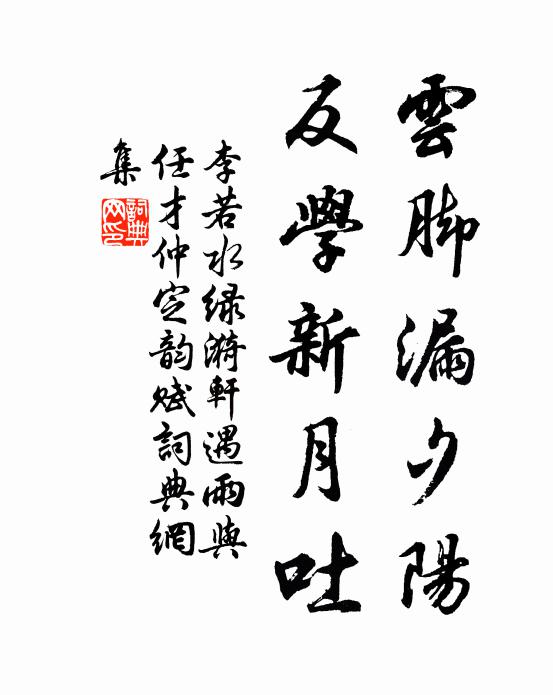 雲脚漏夕陽
反學新月吐
李若水绿漪軒遇雨與
任才仲定韵赋詞典網
集
詞典網印